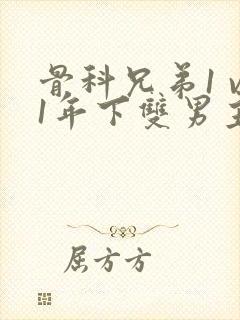 骨科兄弟1v
1年下雙男主
屈方方